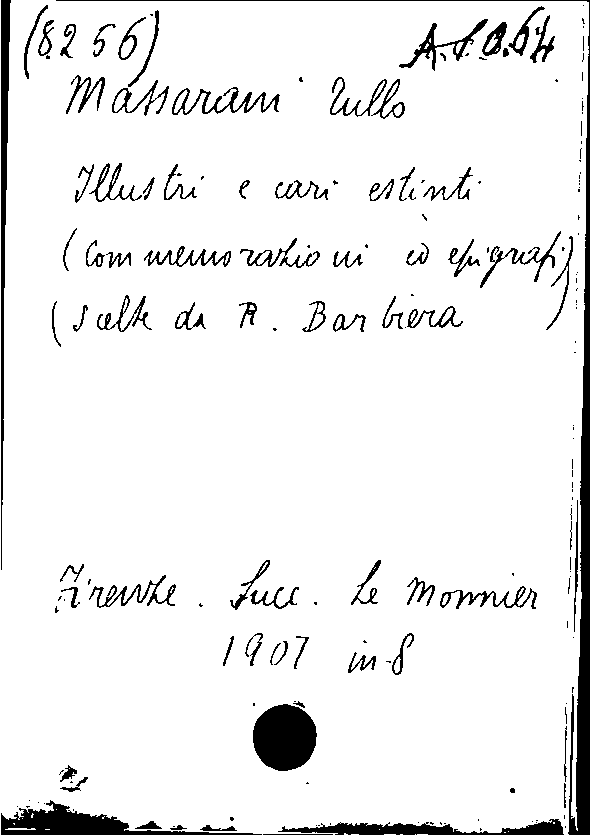 (8256) A.S.B.64
Massarani Tullo
Illustri e cari estinti
(Commemorazioni ed epigrafi)
(scelte da R. Barbiera)
Firenze. Succ. Le Monnier
1907 in-8